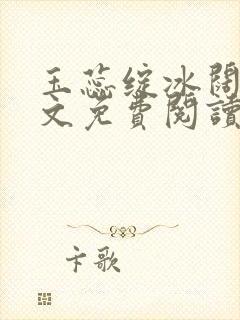 玉蕊绽冰阔
文免費閱讀
卡歌